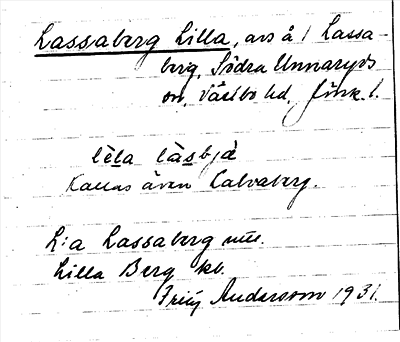 Lassaberg Lilla, avs å / Lassa-
berg, Södra Unnaryds
sn, Västbo hd, Jönk. l.
lèta làsbjà
Kallas även Calvaberg.
L:a Lassaberg
Lilla Berg kb.
Andersson 1931.